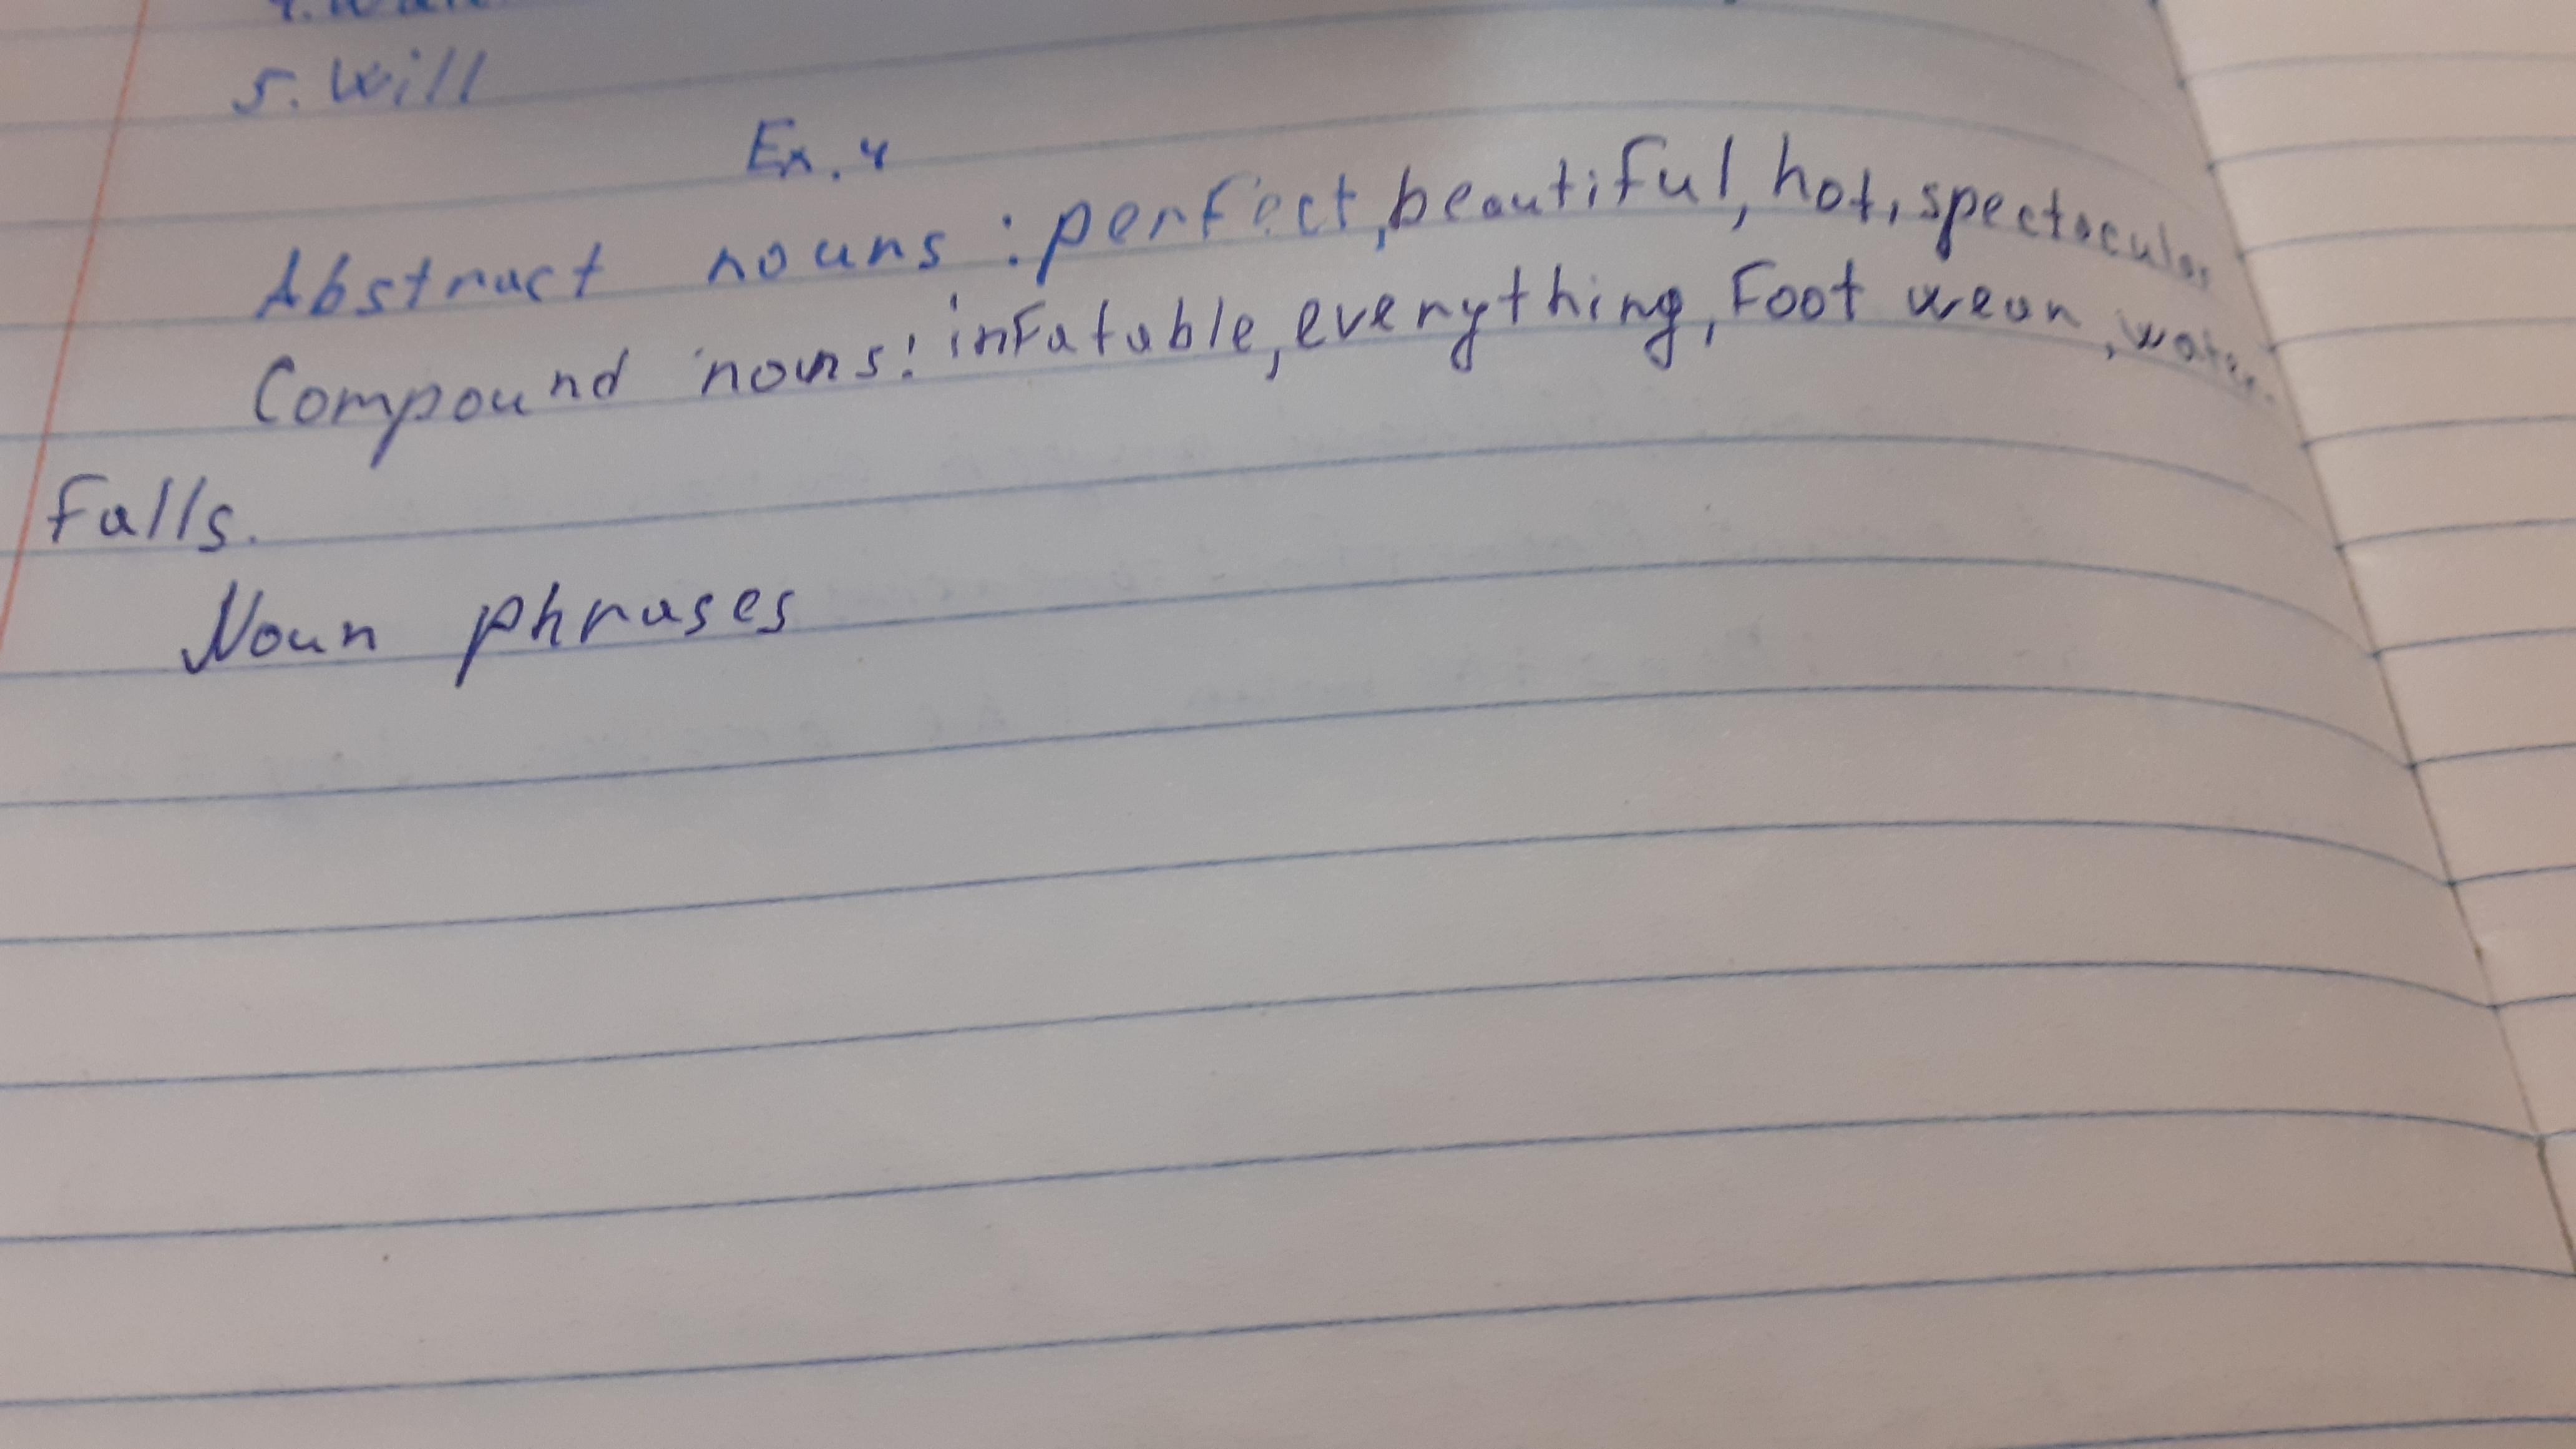 5. Will
Ex. 4
Abstract nouns : perfect, beautiful, hot, spectacular
Compound nouns: infatable, everything, Foot wear, water
Falls.
Noun phrases